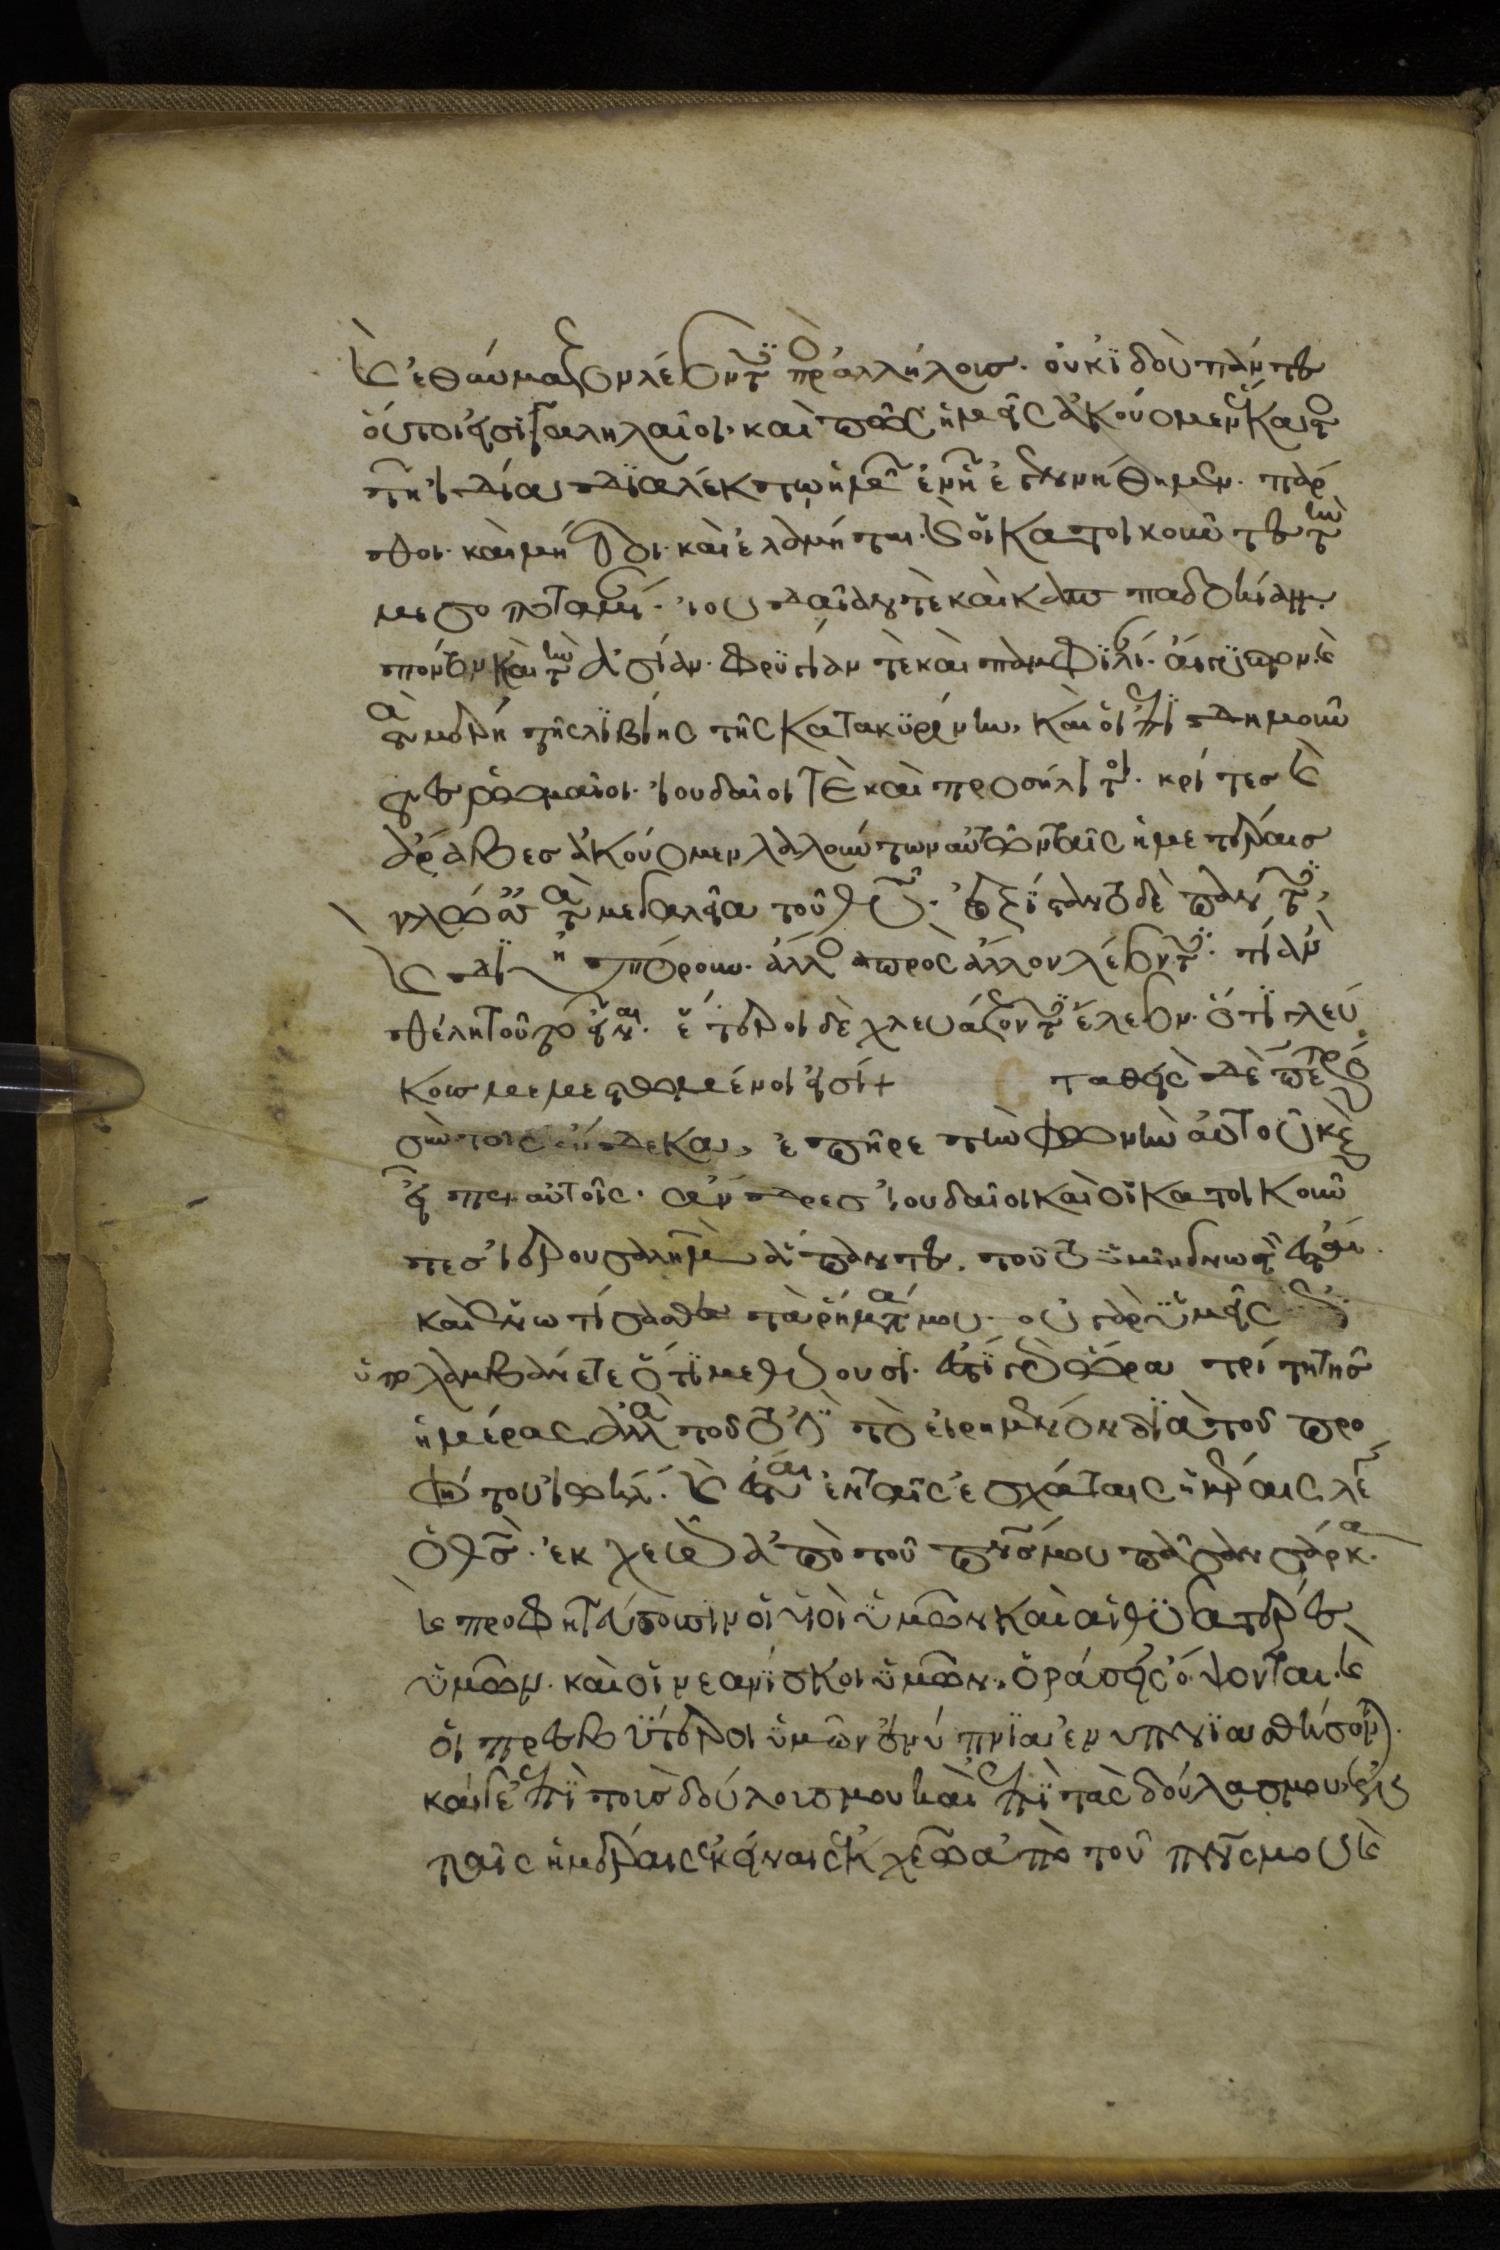 καὶ ἐθαύμαζον λέγοντες πρὸς ἀλλήλους· οὐκ ἰδοὺ πάντες
οὗτοι εἰσὶ γαλιλαῖοι· καὶ πῶς ἡμεῖς ἀκούομεν ἕκαστος
τῇ ἰδίᾳ διαλέκτῳ ἡμῶν ἐν ᾗ ἐγεννήθημεν· πάρ
θοι· καὶ μῆδοι· καὶ ἐλαμῆται· καὶ οἱ κατοικοῦντες τὴν
μεσοποταμίαν· ἰουδαίαν τὲ καὶ καππαδοκίαν·
πόντον καὶ τὴν ἀσίαν· φρυγίαν τὲ καὶ παμφυλίαν· αἴγυπτον καὶ
τὰ μέρη τῆς λιβύης τῆς κατὰ κυρήνην, καὶ οἱ ἐπιδημοῦν
τες ῥωμαῖοι· ἰουδαῖοι τὲ καὶ προσήλυτοι· κρῆτες καὶ
ἄραβες ἀκούομεν λαλούντων αὐτῶν ταῖς ἡμετέραις
γλώσσαις τὰ μεγαλεῖα τοῦ θῦ· ἐξίσταντο δὲ πάντες,
καὶ διηπόρουν· ἄλλος πρὸς ἄλλον λέγοντες· τί ἂν
θέλοι τοῦτο εἶναι· ἕτεροι δὲ χλευάζοντες ἔλεγον· ὅτι γλεύ
κους μεμεστωμένοι εἰσί + ταθεὶς δὲ πέτρος
σὺν τοῖς ἕνδεκα, ἐπῆρε τὴν φωνὴν αὐτοῦ καὶ
εἶπεν αὐτοῖς· ἄνδρες ἰουδαῖοι καὶ οἱ κατοικοῦν
τες ἱερουσαλὴμ ἅπαντες, τοῦτο ὑμῖν γνωστὸν ἔστω·
καὶ ἐνωτίσασθε τὰ ῥήματά μου· οὐ γὰρ ὡς ὑμεῖς
ὑπολαμβάνετε ὅτι μεθύουσι· ἔστι γὰρ ὥρα τρίτη τῆς
ἡμέρας ἀλλὰ τοῦτό ἐστι τὸ εἰρημένον διὰ τοῦ προ
φήτου ἰωήλ· καὶ ἔσται ἐν ταῖς ἐσχάταις ἡμέραις λέγει
ὁ θς· ἐκχεῶ ἀπὸ τοῦ πνς μου πᾶσαν σάρκα·
καὶ προφητεύσουσιν οἱ υἱοὶ ὑμῶν καὶ αἱ θυγατέρες
ὑμῶν· καὶ οἱ νεανίσκοι ὑμῶν, ὁράσεις ὄψονται· καὶ
οἱ πρεσβύτεροι ὑμῶν ἐνύπνια ἐνυπνιασθήσονται·
καί γε ἐπὶ τοὺς δούλους μου καὶ ἐπὶ τὰς δούλας μου ἐν
ταῖς ἡμέραις ἐκείναις ἐκχεῶ ἀπὸ τοῦ πνς μου καὶ